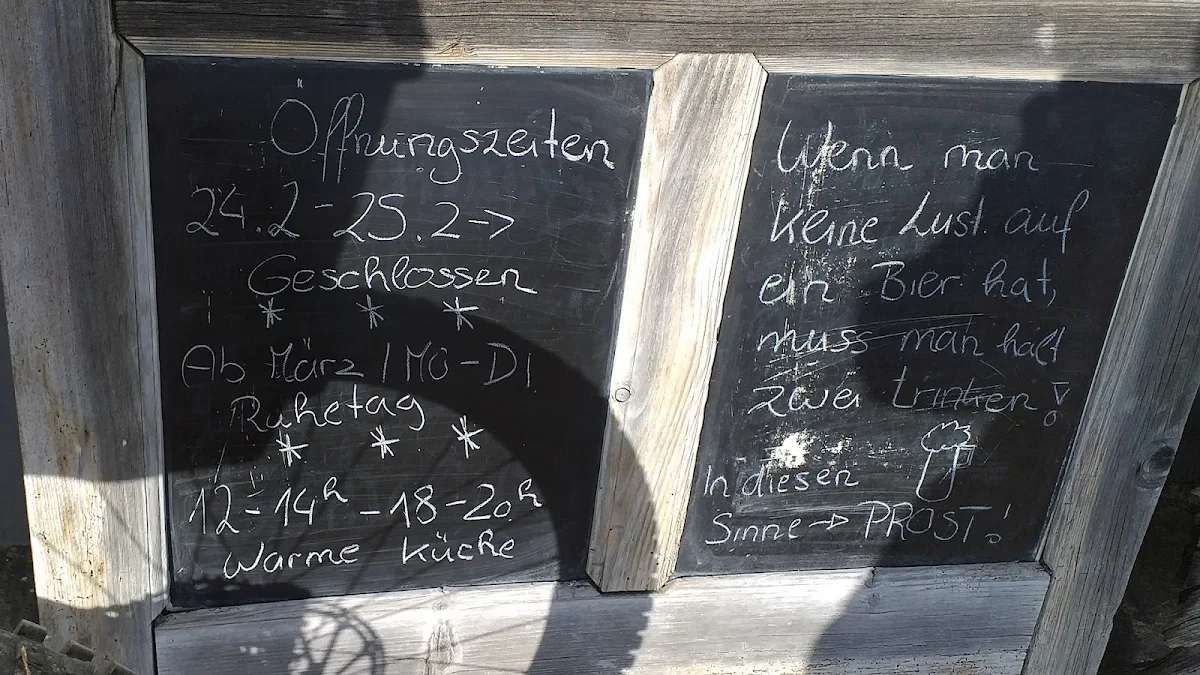 Öffnungszeiten
24.2-25.2->
Geschlossen
* * *
Ab März / MO-DI
Ruhetag
* * *
12-14h-18-20h
Warme Küche
Wenn man
keine Lust auf
ein Bier hat,
muss man halt
zwei trinken!
In diesen
Sinne -> PROST!